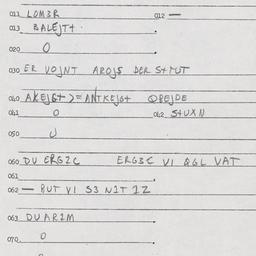 011 LOM3R 012 —
013 BALEJT+.
020 O
030 ER VOJNT AROJS DER S+MUT
040 AKEJG+ >= ANTKEJG+ QREJDE
041 O 042 S+UXN
050 U
060 DU ERG2C ERG3C VI QGL VAT
061
062 — BUT VI S3 N1T 12
063 DUAR1M
070 O